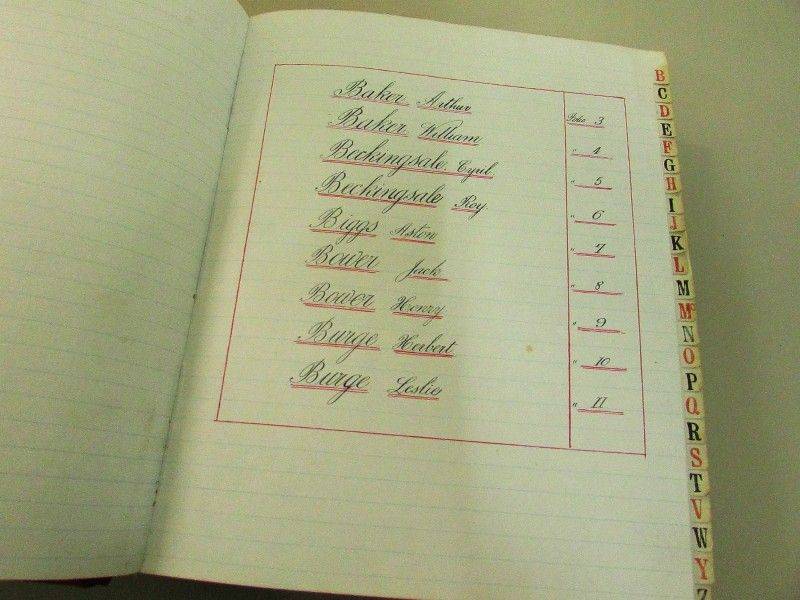 Baker Arthur Folio 3
Baker William " 4
Beckingsale. Cyril " 5
Beckingsale Roy. " 6
Biggs Aston " 7
Bower Jack " 8
Bower Henry " 9
Burge Herbert " 10
Burge Leslie " 11
B
C
D
E
F
G
H
I
J
K
L
M
Mc
N
O
P
Q
R
S
T
V
W
Y
Z